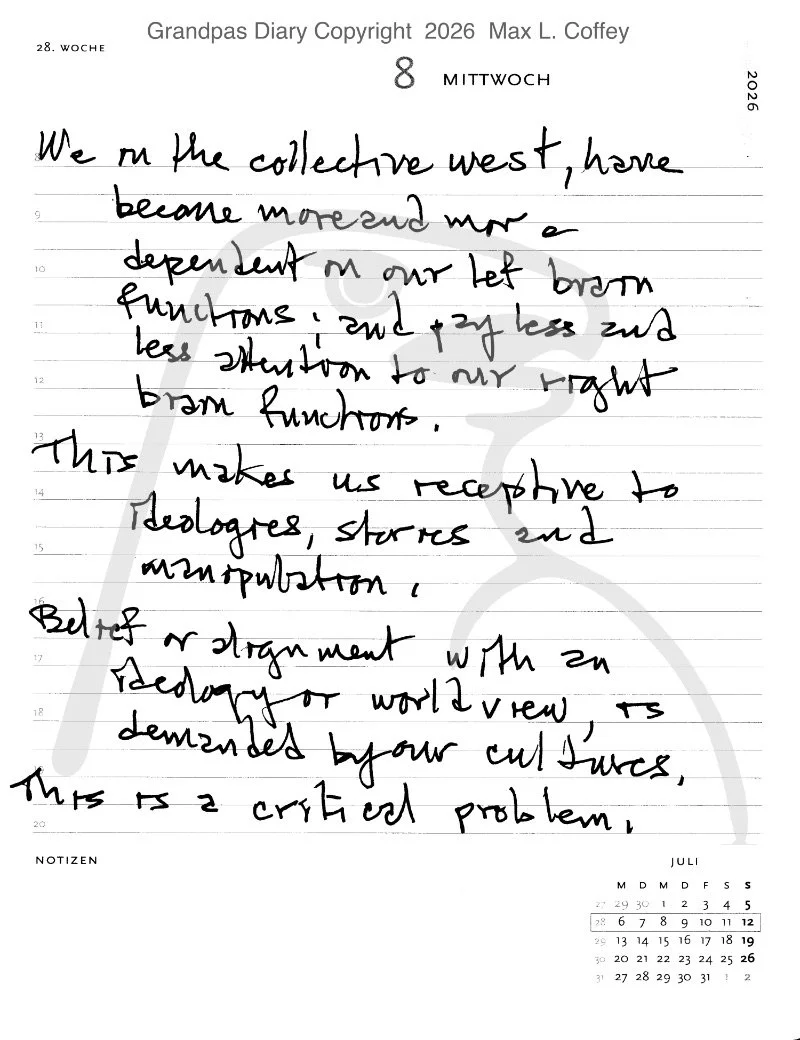 Grandpas Diary Copyright 2026 Max L. Coffey
28. WOCHE
8 MITTWOCH
2026
We in the collective west, have
become more and more
dependent on our left brain
functions; and pay less and
less attention to our right
brain functions.
This makes us receptive to
ideologies, stories and
manipulation.
Belief or alignment with an
ideology or world view, is
demanded by our cultures.
This is a critical problem.
8
9
10
11
12
13
14
15
16
17
18
20
NOTIZEN
JULI
M D M D F S S
27 29 30 1 2 3 4 5
28 6 7 8 9 10 11 12
29 13 14 15 16 17 18 19
30 20 21 22 23 24 25 26
31 27 28 29 30 31 1 2